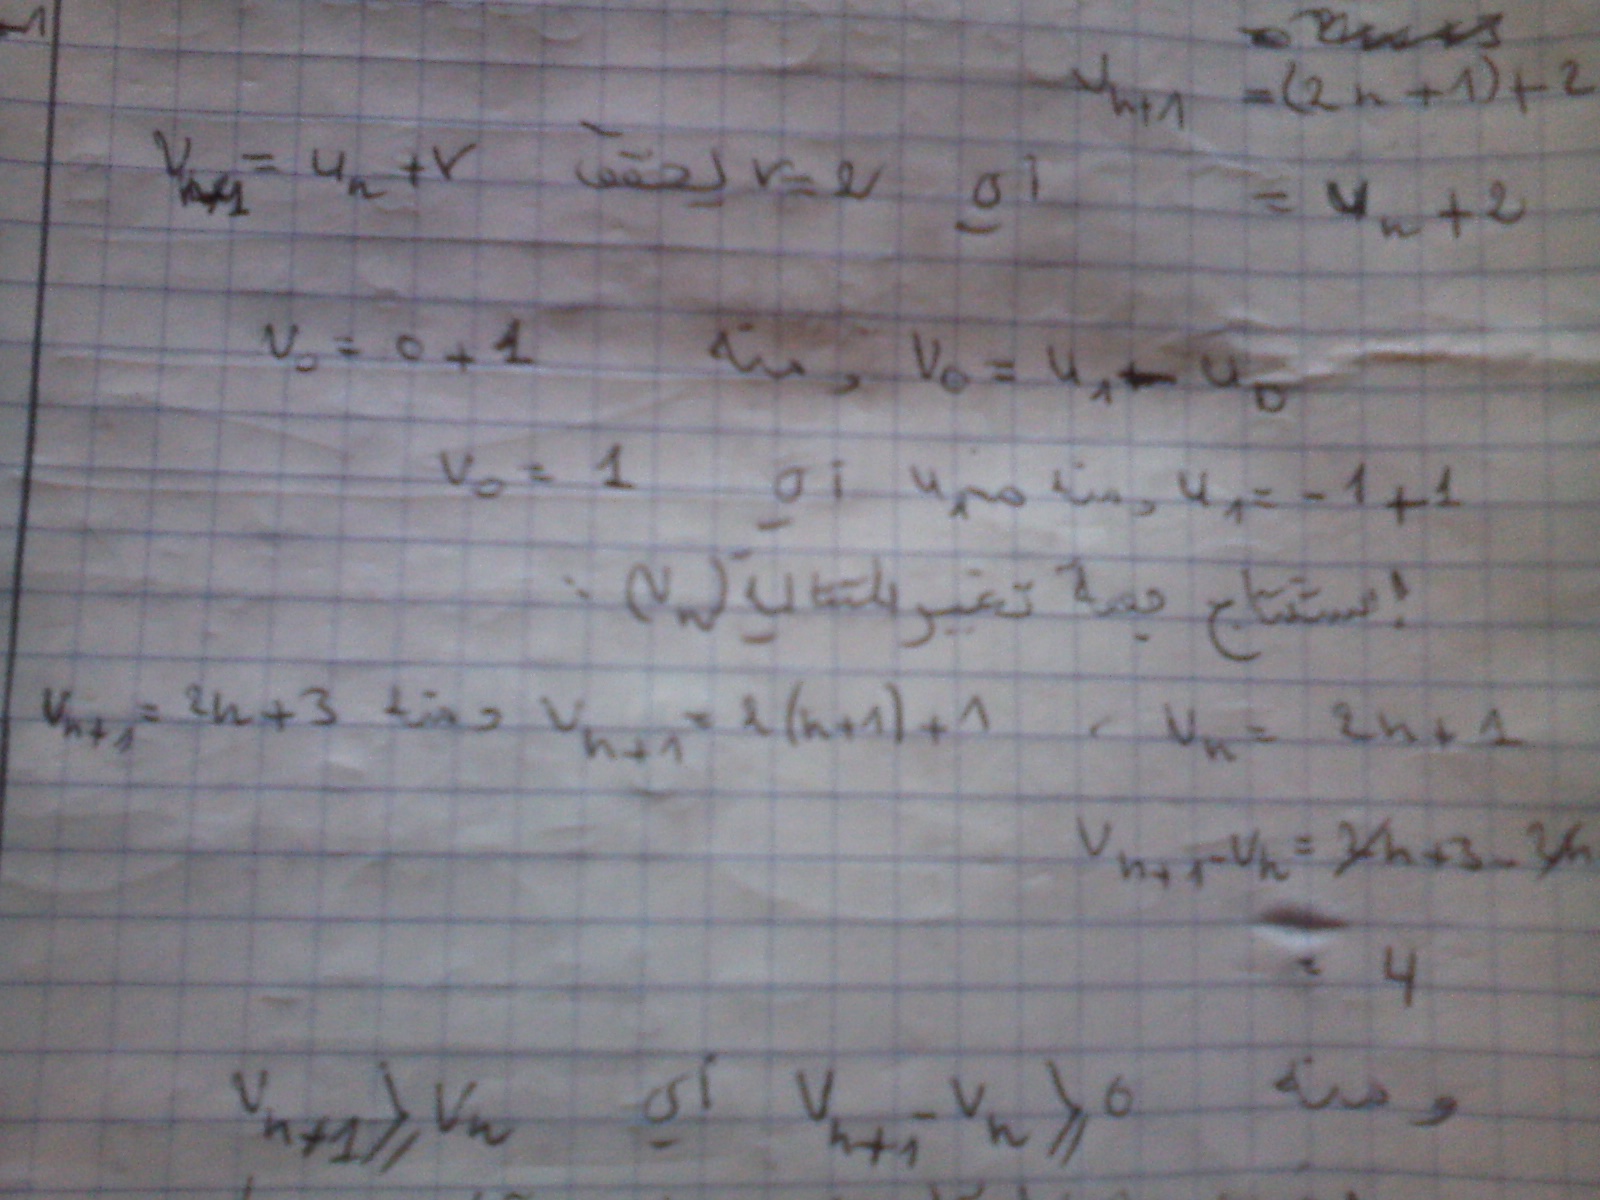 U_{n+1} = (2n+1)+2
= u_n + 2 أي r=2 لحقت V_{n+1} = u_n + r
V_0 = u_1 - u_0 ومنه V_0 = 0+1
u_1 = -1+1 ومنه u_1 أي V_0 = 1
استنتاج جهة تغير المتتالية (V_n) :
V_n = 2n+1 ، V_{n+1} = 2(n+1)+1 ومنه V_{n+1} = 2n+3
V_{n+1} - V_n = 2n+3-2n
= 4
ومنه V_{n+1} - V_n ⩾ 0 أي V_{n+1} ⩾ V_n